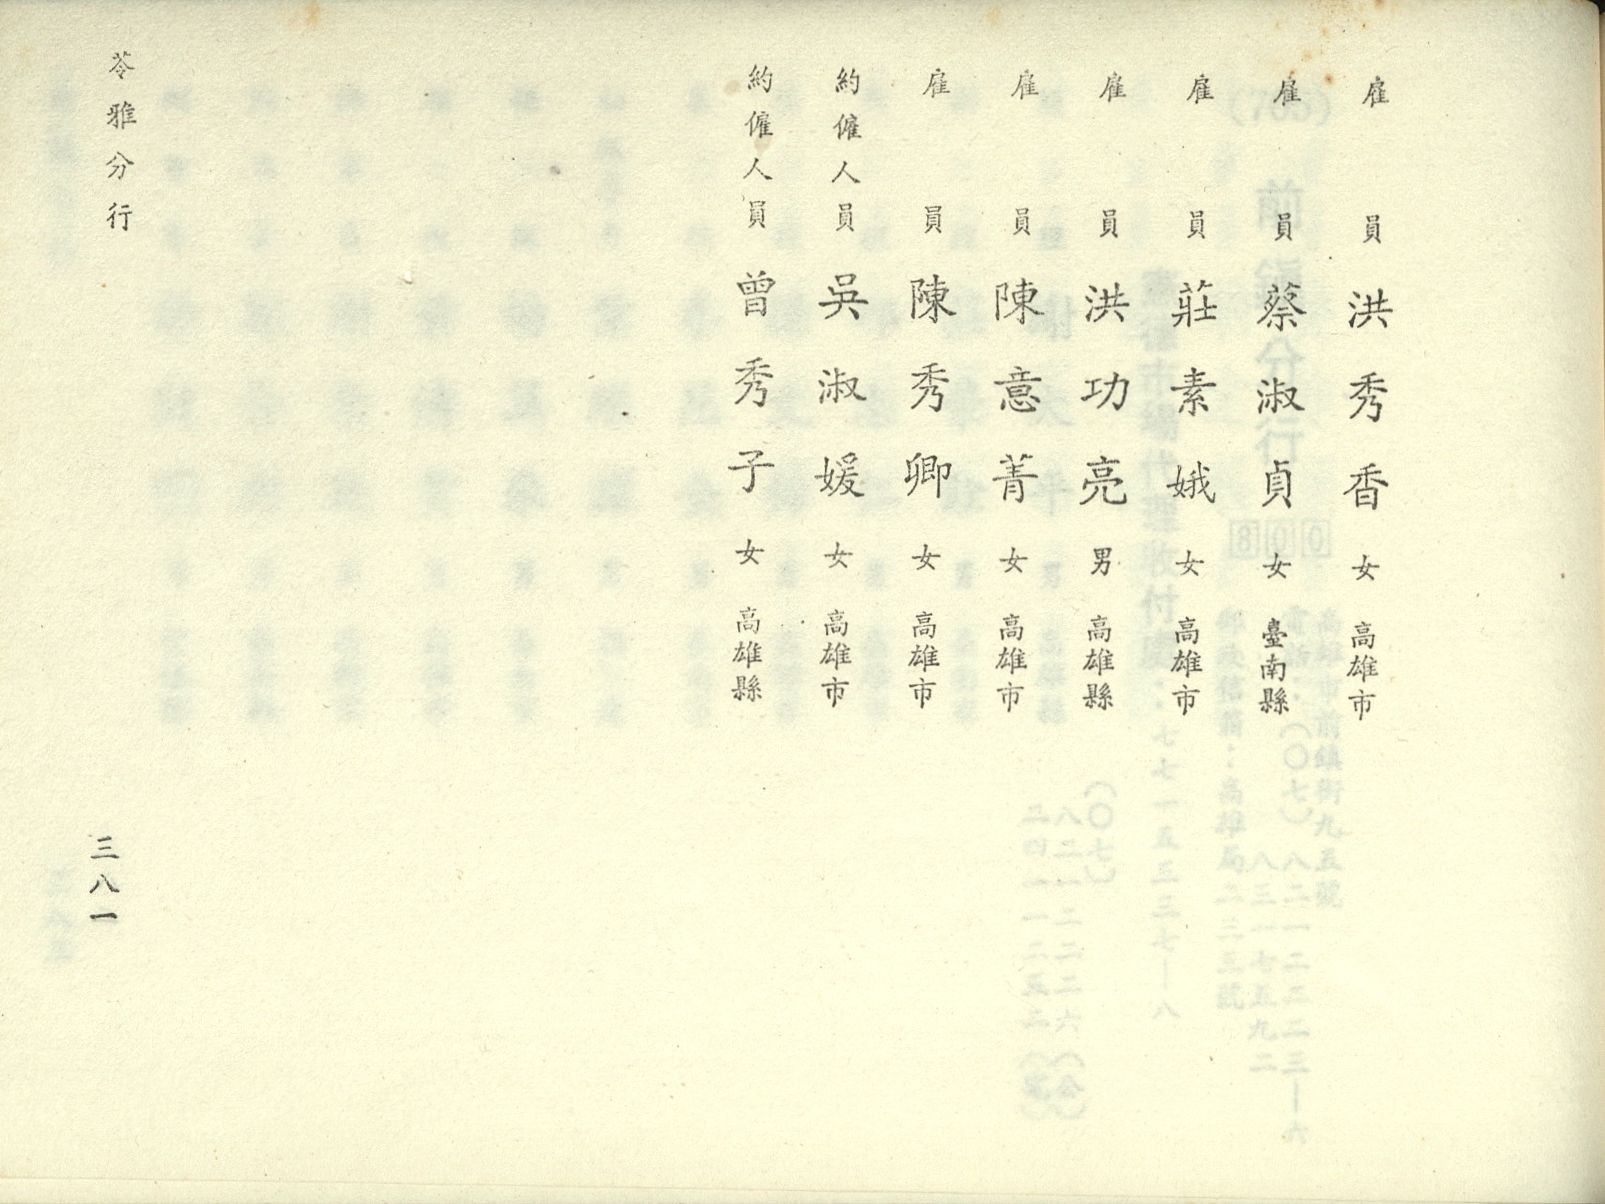 雇員 洪秀香 女 高雄市
雇員 蔡淑貞 女 臺南縣
雇員 莊素娥 女 高雄市
雇員 洪功亮 男 高雄縣
雇員 陳意菁 女 高雄市
雇員 陳秀卿 女 高雄市
約僱人員 吳淑媛 女 高雄市
約僱人員 曾秀子 女 高雄縣
苓雅分行
三八一